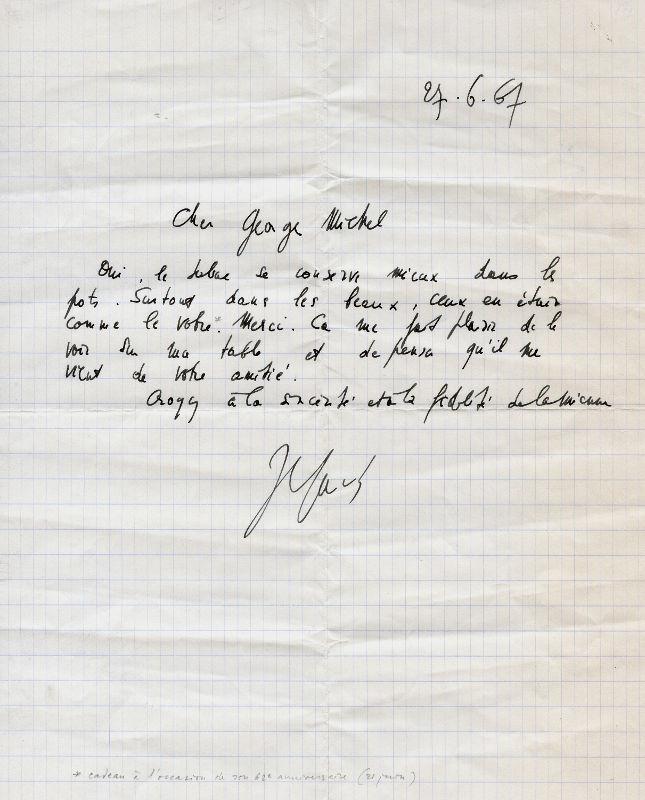 27.6.67
Cher George Michel
Oui, le tabac se conserve mieux dans les
pots. Surtout dans les beaux, ceux en étain
comme le votre*. Merci. Ça me fait plaisir de le
voir sur ma table et de penser qu'il me
vient de votre amitié.
Croyez à la sincérité et à la fidélité de la mienne
* cadeau à l'occasion de son 62e anniversaire (21 juin)